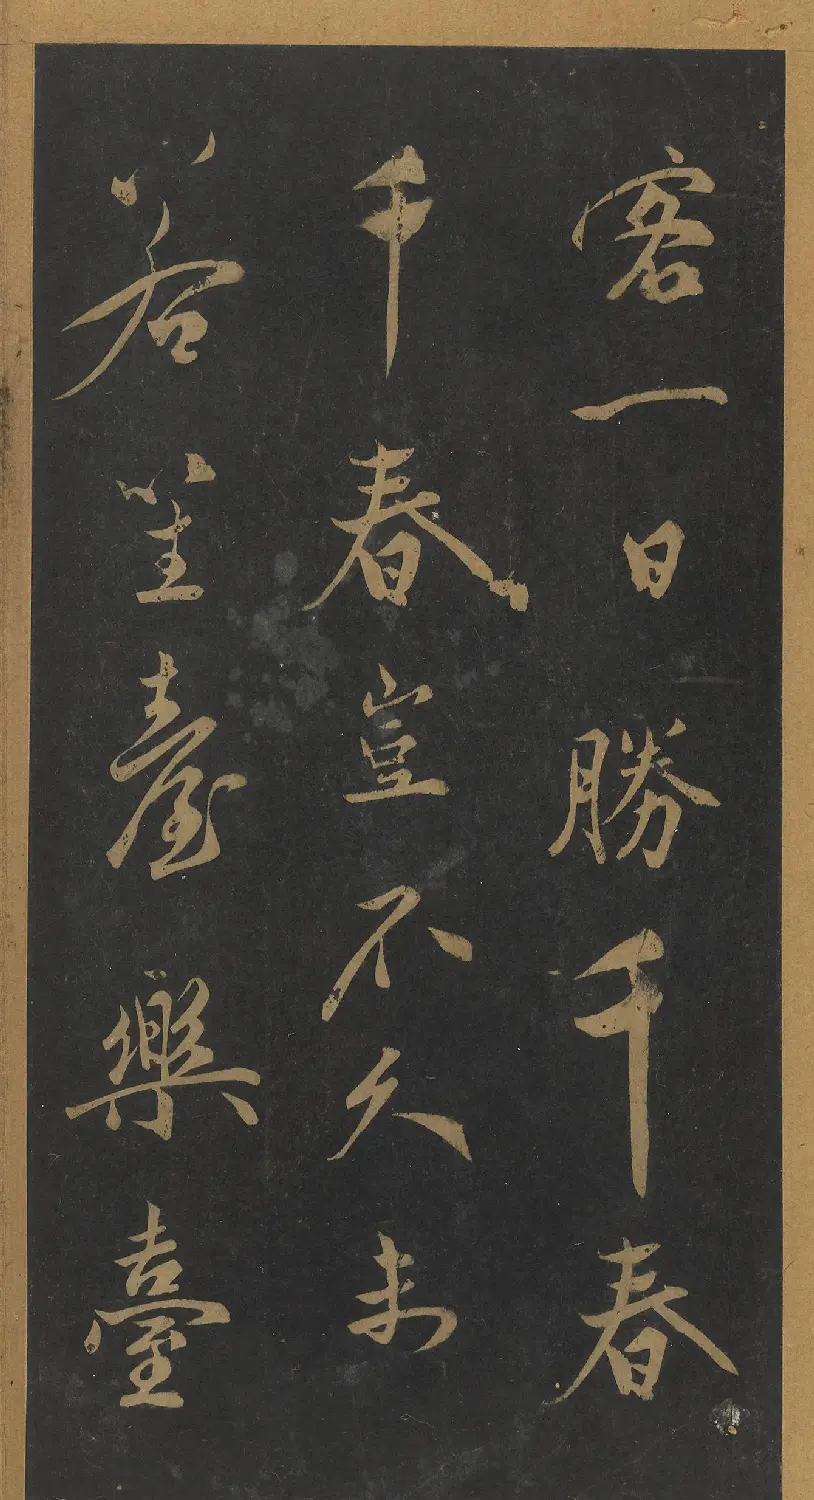 客一日勝千春
千春豈不久未
若臺樂臺